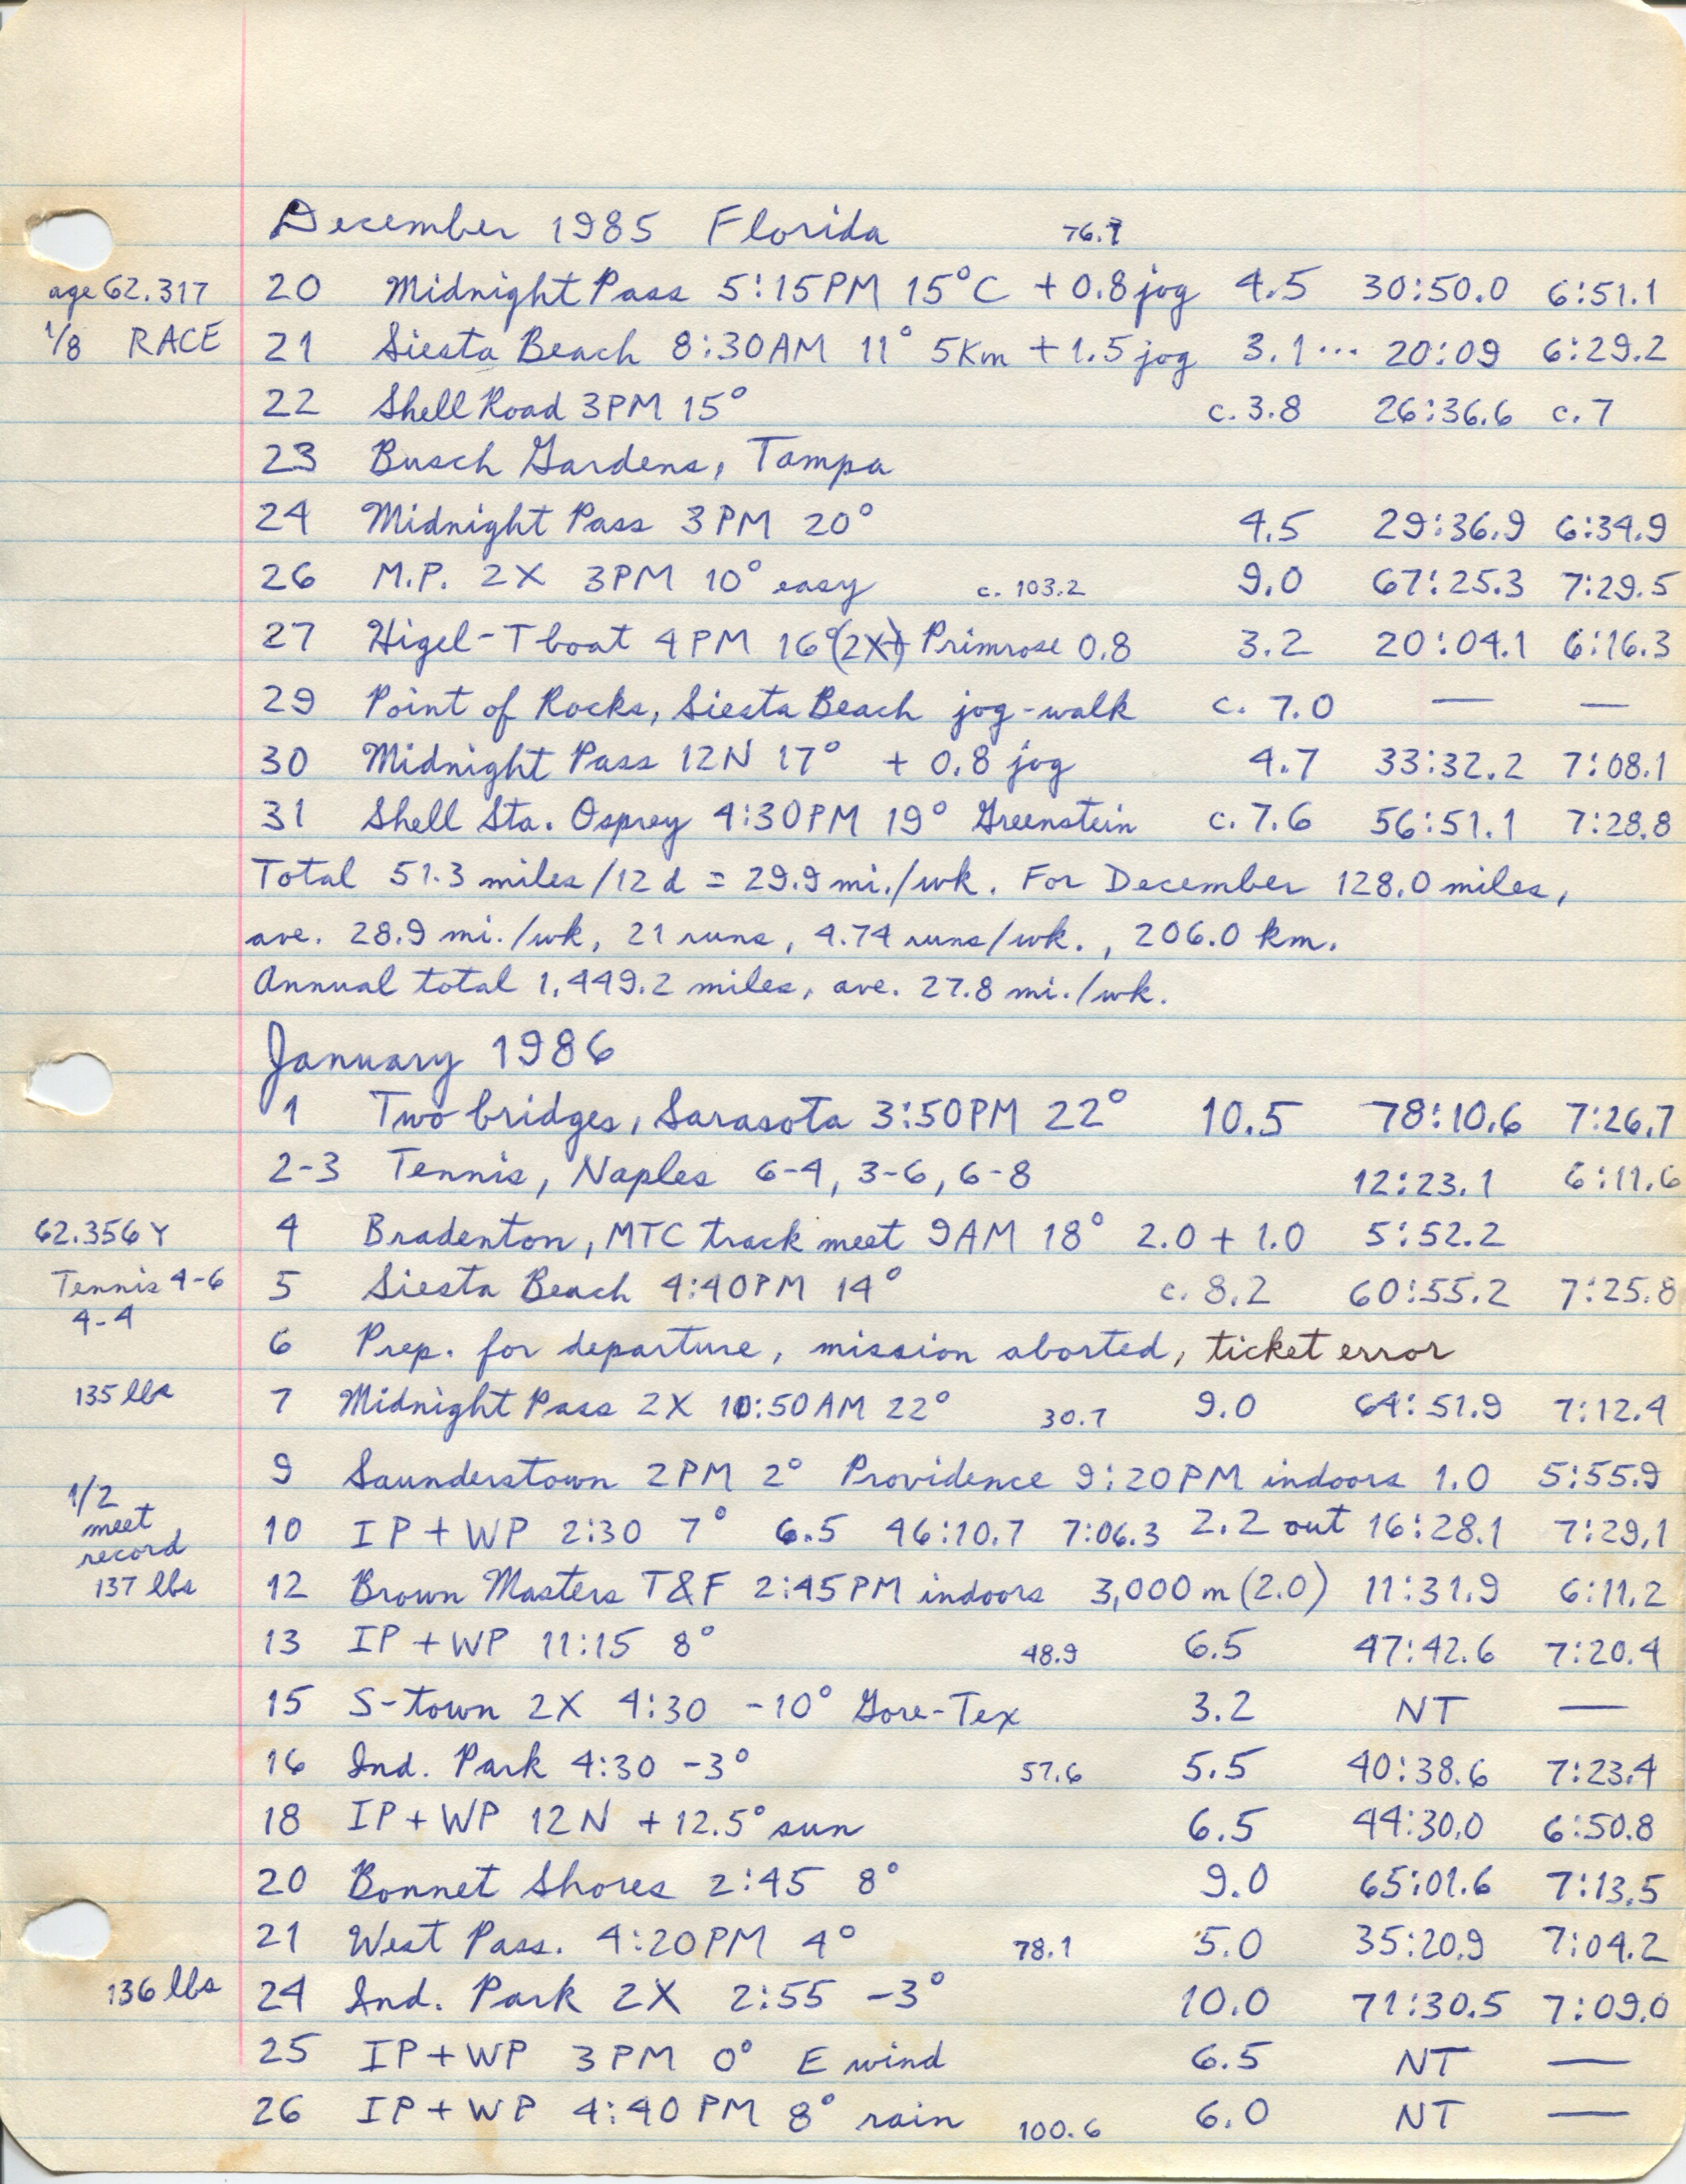 December 1985 Florida 76.7
age 62.317 20 Midnight Pass 5:15PM 15°C + 0.8 jog 4.5 30:50.0 6:51.1
1/8 RACE 21 Siesta Beach 8:30AM 11° 5Km + 1.5 jog 3.1... 20:09 6:29.2
22 Shell Road 3PM 15° c. 3.8 26:36.6 c. 7
23 Busch Gardens, Tampa
24 Midnight Pass 3PM 20° 4.5 29:36.9 6:34.9
26 M.P. 2X 3PM 10° easy c. 103.2 9.0 67:25.3 7:29.5
27 Higel-T boat 4PM 16° (2X) Primrose 0.8 3.2 20:04.1 6:16.3
29 Point of Rocks, Siesta Beach jog-walk c. 7.0 — —
30 Midnight Pass 12N 17° + 0.8 jog 4.7 33:32.2 7:08.1
31 Shell Sta. Osprey 4:30PM 19° Greenstein c. 7.6 56:51.1 7:28.8
Total 51.3 miles/12 d = 29.9 mi./wk. For December 128.0 miles,
ave. 28.9 mi./wk, 21 runs, 4.74 runs/wk., 206.0 km.
Annual total 1,449.2 miles, ave. 27.8 mi./wk.
January 1986
1 Two bridges, Sarasota 3:50PM 22° 10.5 78:10.6 7:26.7
2-3 Tennis, Naples 6-4, 3-6, 6-8 12:23.1 6:11.6
62.356 Y 4 Bradenton, MTC track meet 9AM 18° 2.0 + 1.0 5:52.2
Tennis 4-6 5 Siesta Beach 4:40PM 14° c. 8.2 60:55.2 7:25.8
4-4
6 Prep. for departure, mission aborted, ticket error
135 lbs 7 Midnight Pass 2X 10:50AM 22° 30.7 9.0 64:51.9 7:12.4
9 Saunderstown 2PM 2° Providence 9:20PM indoors 1.0 5:55.9
1/2
meet
record
10 IP + WP 2:30 7° 6.5 46:10.7 7:06.3 2.2 out 16:28.1 7:29.1
137 lbs 12 Brown Masters T&F 2:45PM indoors 3,000 m (2.0) 11:31.9 6:11.2
13 IP + WP 11:15 8° 48.9 6.5 47:42.6 7:20.4
15 S-town 2X 4:30 -10° Gore-Tex 3.2 NT —
16 Ind. Park 4:30 -3° 57.6 5.5 40:38.6 7:23.4
18 IP + WP 12N +12.5° sun 6.5 44:30.0 6:50.8
20 Bonnet Shores 2:45 8° 9.0 65:01.6 7:13.5
21 West Pass. 4:20PM 4° 78.1 5.0 35:20.9 7:04.2
136 lbs 24 Ind. Park 2X 2:55 -3° 10.0 71:30.5 7:09.0
25 IP + WP 3PM 0° E wind 6.5 NT —
26 IP + WP 4:40PM 8° rain 100.6 6.0 NT —